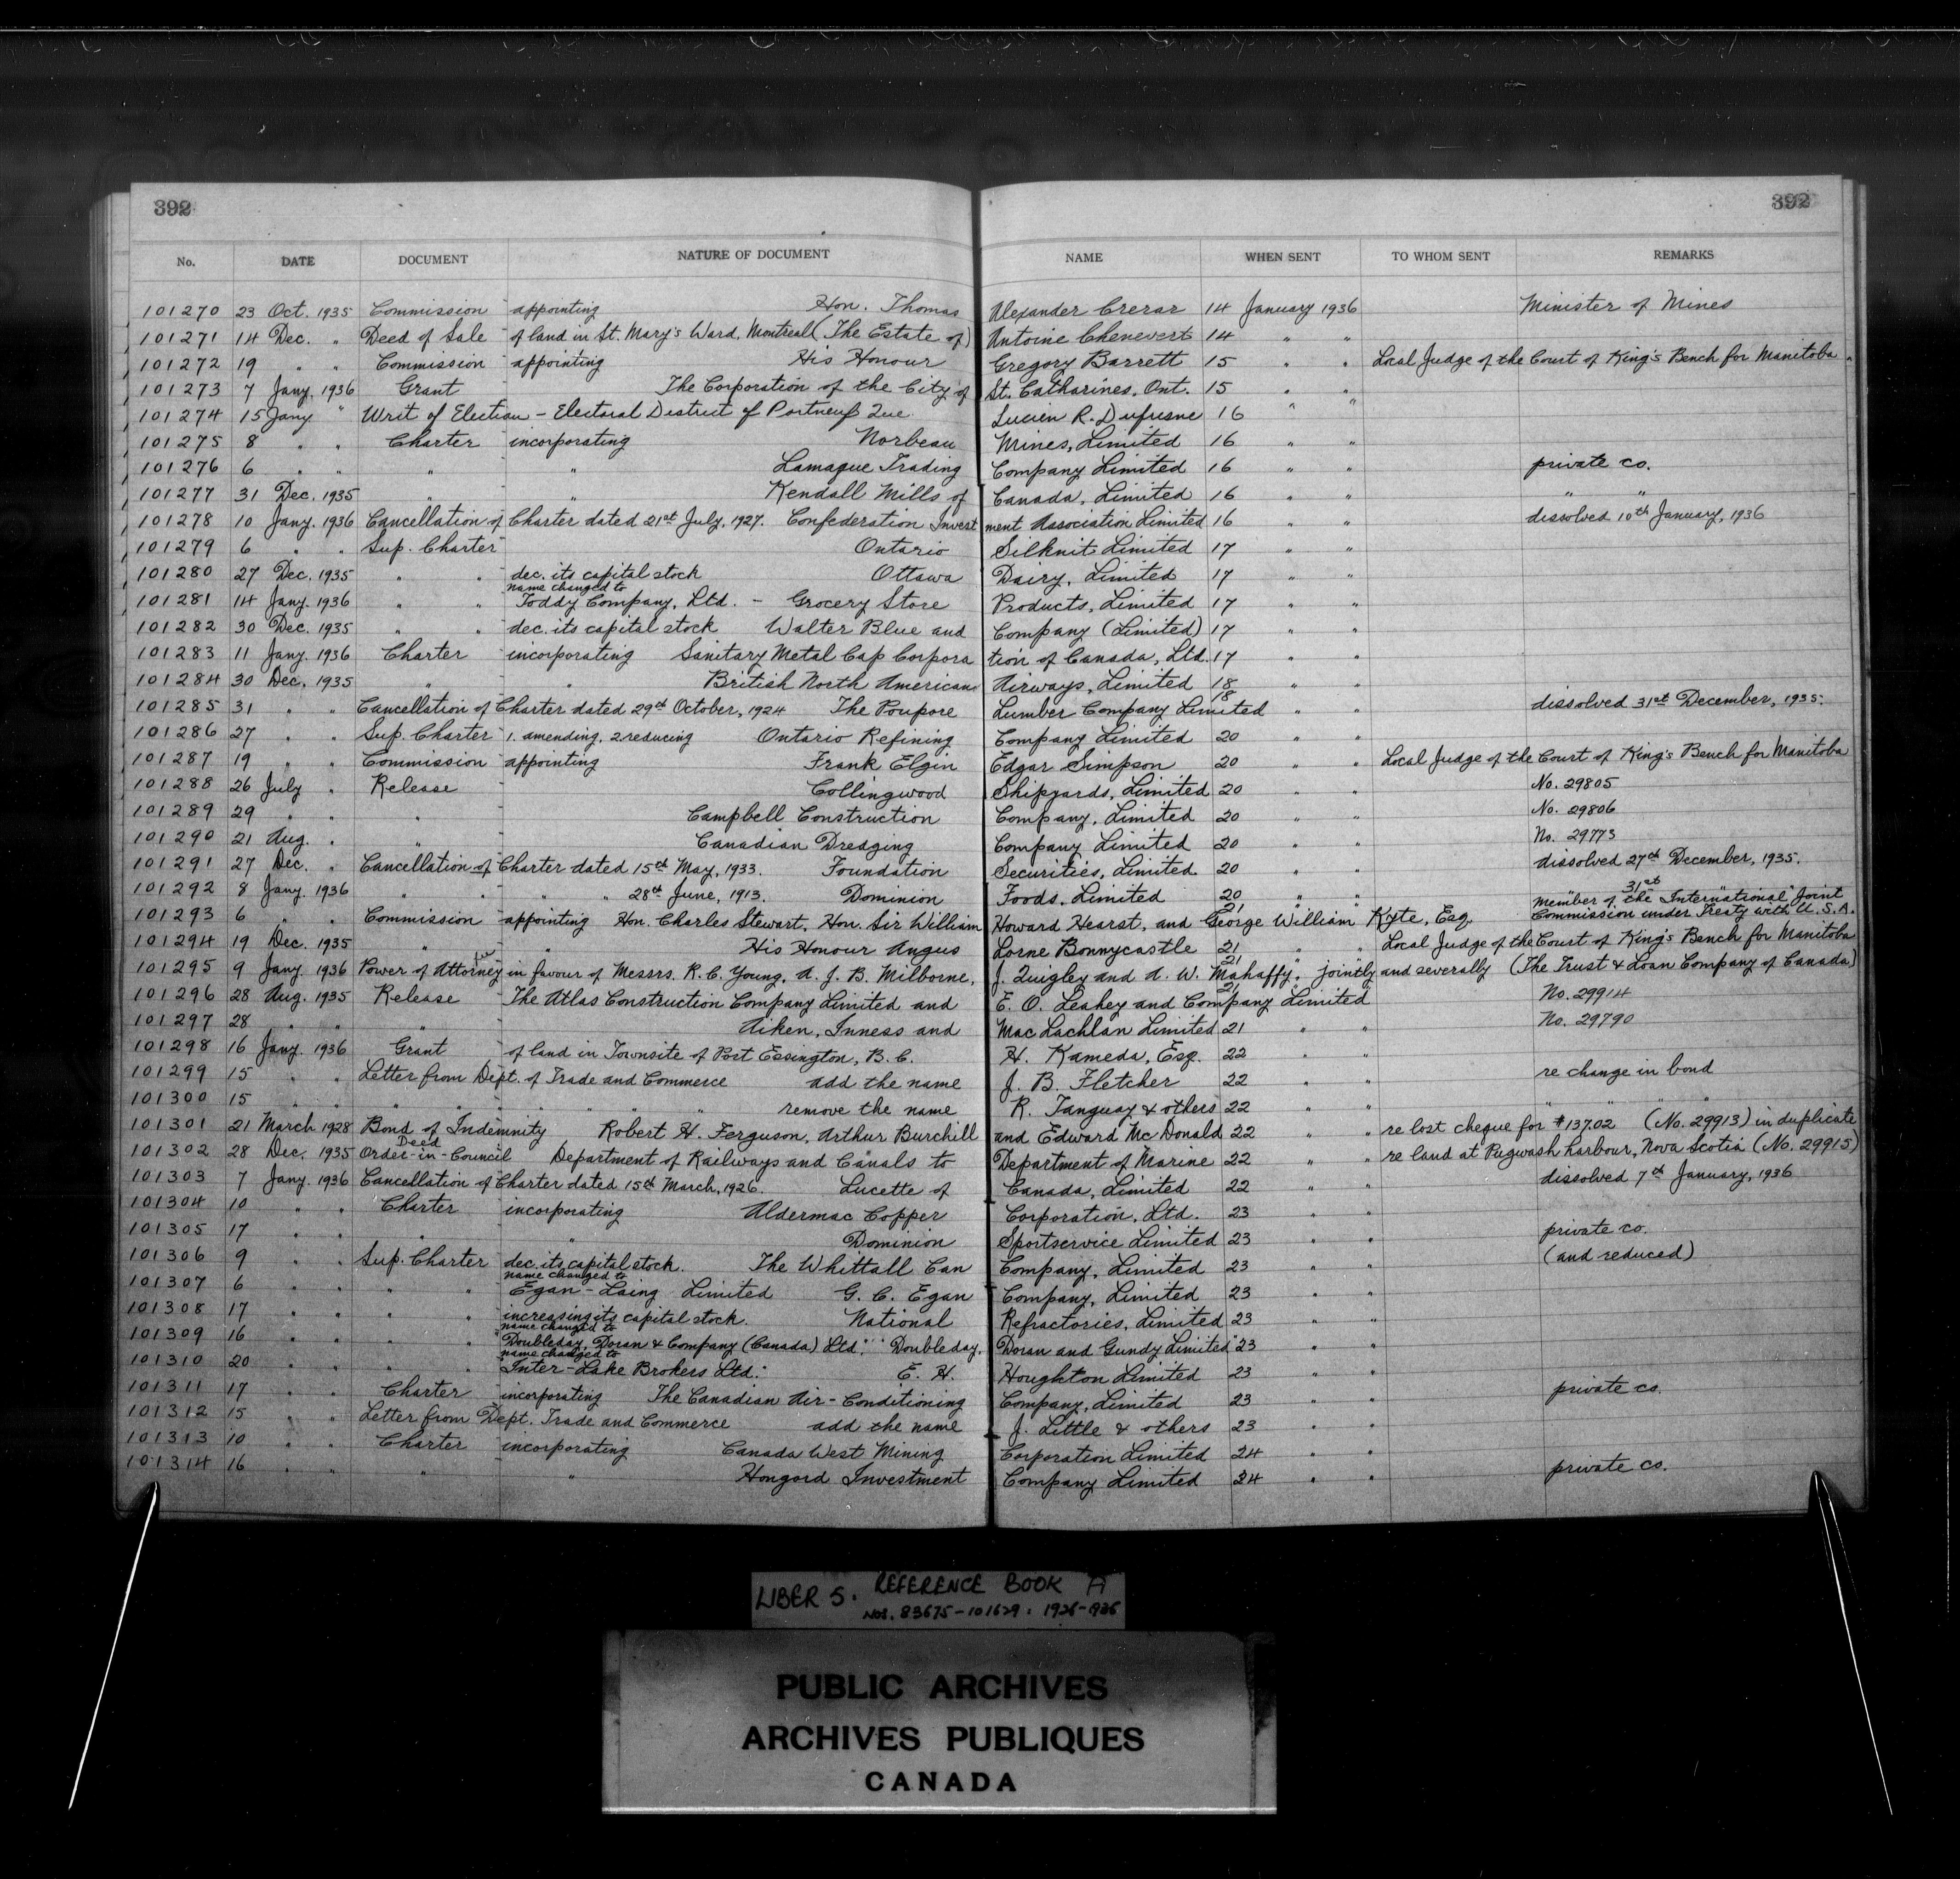 392 392
No. DATE DOCUMENT NATURE OF DOCUMENT NAME WHEN SENT TO WHOM SENT REMARKS
101270 23 Oct. 1935 Commission appointing Hon. Thomas Alexander Crerar 14 January 1936 Minister of Mines
101271 14 Dec. " Deed of Sale of land in St. Mary's Ward, Montreal (The Estate of) Antoine Chenevert 14 " "
101272 19 " " Commission appointing His Honour Gregory Barrett 15 " " Local Judge of the Court of King's Bench for Manitoba
101273 7 Jany. 1936 Grant The Corporation of the City of St. Catharines, Ont. 15 " "
101274 15 Jany " Writ of Election - Electoral District of Portneuf Que. Lucien R. Dufresne 16 " "
101275 8 " " Charter incorporating Norbeau Mines, Limited 16 " "
101276 6 " " " " Lamaque Trading Company Limited 16 " " private co.
101277 31 Dec. 1935 " " Kendall Mills of Canada, Limited 16 " " " "
101278 10 Jany. 1936 Cancellation of Charter dated 21st July, 1927. Confederation Investment Association Limited 16 " " dissolved 10th January, 1936
101279 6 " " Sup. Charter Ontario Silknit Limited 17 " "
101280 27 Dec. 1935 " " dec. its capital stock Ottawa Dairy, Limited 17 " "
name changed to
101281 14 Jany. 1936 " " Toddy Company, Ltd. - Grocery Store Products, Limited 17 " "
101282 30 Dec. 1935 " " dec. its capital stock Walter Blue and Company (Limited) 17 " "
101283 11 Jany. 1936 Charter incorporating Sanitary Metal Cap Corporation of Canada, Ltd. 17 " "
101284 30 Dec. 1935 " " British North American Airways, Limited 18 " "
101285 31 " " Cancellation of Charter dated 29th October, 1924 The Poupore Lumber Company Limited 18 " " dissolved 31st December, 1935.
101286 27 " " Sup. Charter 1. amending, 2. reducing Ontario Refining Company Limited 20 " "
101287 19 " " Commission appointing Frank Elgin Edgar Simpson 20 " " Local Judge of the Court of King's Bench for Manitoba
101288 26 July " Release Collingwood Shipyards, Limited 20 " " No. 29805
101289 29 " " " Campbell Construction Company, Limited 20 " " No. 29806
101290 21 Aug. " " Canadian Dredging Company Limited 20 " " No. 29773
101291 27 Dec. " Cancellation of Charter dated 15th May, 1933. Foundation Securities, Limited 20 " " dissolved 27th December, 1935.
101292 8 Jany. 1936 " " " " 28th June, 1913. Dominion Foods, Limited 20 " " " 31st " "
101293 6 " " Commission appointing Hon. Charles Stewart, Hon. Sir William Howard Hearst, and George William Kyte, Esq. 21 member of the International Joint
Commission under Treaty with U.S.A.
101294 19 Dec. 1935 " " His Honour Angus Lorne Bonnycastle 21 " " Local Judge of the Court of King's Bench for Manitoba
101295 9 Jany. 1936 Power of Attorney in favour of Messrs. R. C. Young, A. J. B. Milborne, J. Quigley and A. W. Mahaffy. 21 jointly and severally (The Trust & Loan Company of Canada)
101296 28 Aug. 1935 Release The Atlas Construction Company Limited and E. O. Leahey and Company Limited 21 No. 29914
101297 28 " " " Aiken, Inness and MacLachlan Limited 21 " " No. 29790
101298 16 Jany. 1936 Grant of land in Townsite of Port Essington, B.C. H. Kameda, Esq. 22 " "
101299 15 " " Letter from Dept. of Trade and Commerce add the name J. B. Fletcher 22 " " re change in bond
101300 15 " " " " " " " remove the name R. Tanguay & others 22 " " " " " "
101301 21 March 1928 Bond of Indemnity Robert H. Ferguson, Arthur Burchill and Edward McDonald 22 " " re lost cheque for $137.02 (No. 29913) in duplicate
Deed
101302 28 Dec. 1935 Order-in-Council Department of Railways and Canals to Department of Marine 22 " " re land at Pugwash harbour, Nova Scotia (No. 29915)
101303 7 Jany. 1936 Cancellation of Charter dated 15th March, 1926. Lucette of Canada, Limited 22 " " dissolved 7th January, 1936
101304 10 " " Charter incorporating Aldermac Copper Corporation, Ltd. 23 " "
101305 17 " " " " Dominion Sportservice Limited 23 " " private co.
101306 9 " " Sup. Charter dec. its capital stock. The Whittall Can Company, Limited 23 " " (and reduced)
name changed to
101307 6 " " " " Egan-Laing Limited G. C. Egan Company, Limited 23 " "
101308 17 " " " " increasing its capital stock. National Refractories, Limited 23 " "
name changed to
101309 16 " " " " "Doubleday, Doran & Company (Canada) Ltd." "Doubleday, Doran and Gundy Limited" 23 " "
name changed to
101310 20 " " " " "Inter-Lake Brokers Ltd." E. H. Houghton Limited 23 " "
101311 17 " " Charter incorporating The Canadian Air-Conditioning Company, Limited 23 " " private co.
101312 15 " " Letter from Dept. Trade and Commerce add the name J. Little & others 23 " "
101313 10 " " Charter incorporating Canada West Mining Corporation Limited 24 " "
101314 16 " " " " Hongord Investment Company Limited 24 " " private co.
LIBER 5. REFERENCE BOOK A
NOS. 83675-101629: 1926-1936
PUBLIC ARCHIVES
ARCHIVES PUBLIQUES
CANADA